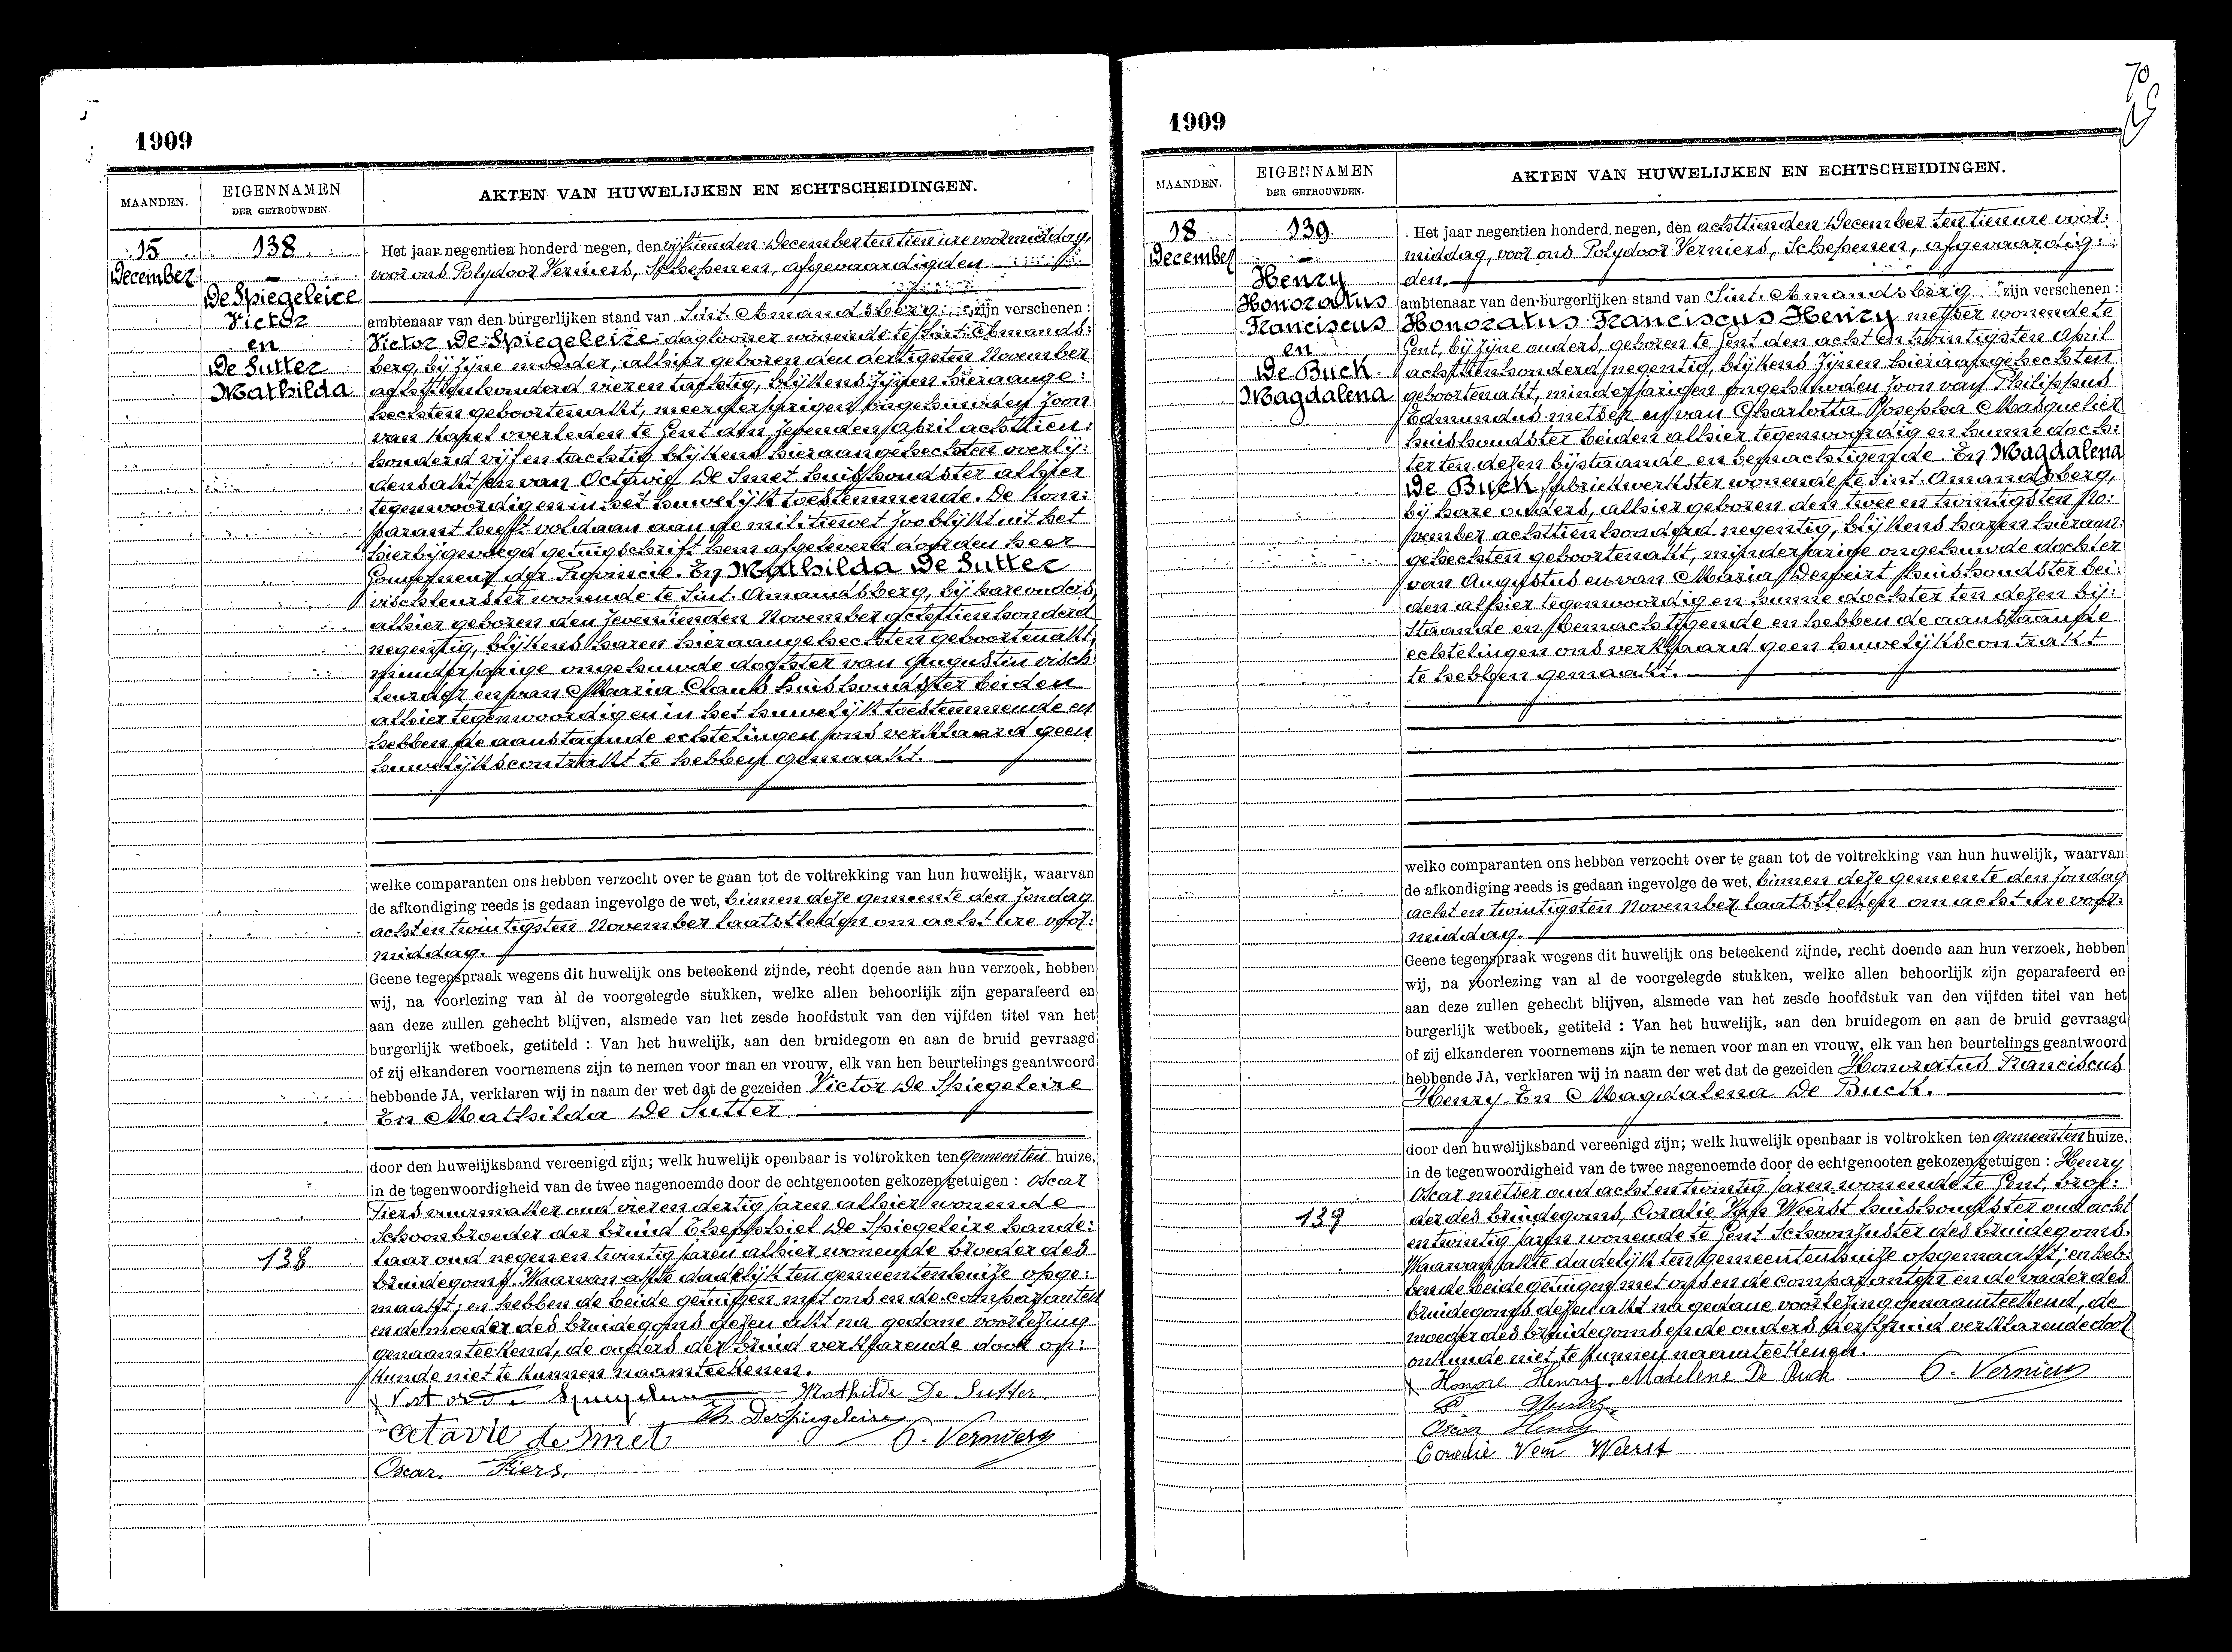 1909
MAANDEN.
EIGENNAMEN
DER GETROUWDEN.
AKTEN VAN HUWELIJKEN EN ECHTSCHEIDINGEN.
15
December
138
De Spiegeleire
Victor
en
De Sutter
Mathilda
138
Het jaar negentien honderd negen, den vijftienden December ten tien ure voormiddag,
voor ons Polydoor Verniers, Schepenen, afgevaardigden
ambtenaar van den burgerlijken stand van Sint. Amandsberg zijn verschenen :
Victor De Spiegeleire daglooner wonende te Sint. Amands:
berg, bij zijne moeder, alhier geboren den dertigsten November
achttienhonderd vieren tachtig, blijkens zijnen hieraange:
hechten geboortenakt, meerderjarigen ongehuwden zoon
van Karel overleden te Gent den zevenden April achttien:
honderd vijfentachtig blijkens hieraangehechten overlij:
densakt en van Octavie De Smet huishoudster alhier
tegenwoordig en in het huwelijk toestemmende. De Kom:
parant heeft voldaan aan de militiewet zoo blijkt uit het
hierbijgevoegd getuigschrift hem afgeleverd door den heer
Gouverneur der Provincie. En Mathilda De Sutter
vischleurster wonende te Sint. Amandsberg, bij hare ouders,
alhier geboren den zeventienden November achttienhonderd
negentig, blijkens haren hieraangehechten geboortenakt,
minderjarige ongehuwde dochter van Augustin visch
leurder en van Maaria Claus huishoudster beiden
alhier tegenwoordig en in het huwelijk toestemmende en
hebben de aanstaande echtelingen ons verklaard geen
huwelijkscontrakt te hebben gemaakt.
welke comparanten ons hebben verzocht over te gaan tot de voltrekking van hun huwelijk, waarvan
de afkondiging reeds is gedaan ingevolge de wet, binnen deze gemeente den zondag
achtentwintigsten November laatstleden om acht ure voor:
middag.
Geene tegenspraak wegens dit huwelijk ons beteekend zijnde, recht doende aan hun verzoek, hebben
wij, na voorlezing van al de voorgelegde stukken, welke allen behoorlijk zijn geparafeerd en
aan deze zullen gehecht blijven, alsmede van het zesde hoofdstuk van den vijfden titel van het
burgerlijk wetboek, getiteld : Van het huwelijk, aan den bruidegom en aan de bruid gevraagd
of zij elkanderen voornemens zijn te nemen voor man en vrouw, elk van hen beurtelings geantwoord
hebbende JA, verklaren wij in naam der wet dat de gezeiden Victor De Spiegeleire
En Mathilda De Sutter
door den huwelijksband vereenigd zijn; welk huwelijk openbaar is voltrokken ten gemeenten huize,
in de tegenwoordigheid van de twee nagenoemde door de echtgenooten gekozen getuigen : Oscar
Fiers vuurmaker oud vieren dertig jaren alhier wonende
Schoonbroeder der bruid Theophiel De Spiegeleire hande:
laar oud negenentwintig jaren alhier wonende broeder des
bruidegoms. Waarvan akte dadelijk ten gemeentenhuize opge:
maakt; en hebben de beide getuigen met ons en de comparanten
en de moeder des bruidegoms dezen akt na gedane voorlezing
genaamteekend, de ouders der bruid verklarende door on:
kunde niet te kunnen naamteekenen.
Mathilde De Sutter
Th. DeSpiegeleire
Octavie de smet
P. Verniers
Oscar Fiers.
1909
MAANDEN.
EIGENNAMEN
DER GETROUWDEN.
AKTEN VAN HUWELIJKEN EN ECHTSCHEIDINGEN.
18
December
139
Henry
Honoratus
Franciscus
en
De Buck
Magdalena
139
Het jaar negentien honderd negen, den achttienden December ten tien ure voor:
middag, voor ons Polydoor Verniers, Schepenen, afgevaardig:
den.
ambtenaar van den burgerlijken stand van Sint. Amandsberg zijn verschenen :
Honoratus Franciscus Henry metser wonende te
Gent, bij zijne ouders, geboren te Gent den acht en twintigsten April
achttienhonderd negentig, blijkens zijnen hieraangehechten
geboortenakt, minderjarigen ongehuwden zoon van Philippus
Edmundus metser en van Charlotta Josepha Masquelier
huishoudster beiden alhier tegenwoordig en hunne doch:
ter ten dezen bijstaande en bemachtigende En Magdalena
De Buck fabriekwerkster wonende te Sint. Amandsberg,
bij hare ouders, alhier geboren den twee en twintigsten No:
vember achttienhonderd negentig, blijkens haren hieraan:
gehechten geboortenakt, minderjarige ongehuwde dochter
van Augustus en van Maria Deweirt huishoudster bei:
den alhier tegenwoordig en hunne dochter ten dezen bij:
staande en bemachtigende en hebben de aanstaande
echtelingen ons verklaard geen huwelijkscontrakt
te hebben gemaakt.
welke comparanten ons hebben verzocht over te gaan tot de voltrekking van hun huwelijk, waarvan
de afkondiging reeds is gedaan ingevolge de wet, binnen deze gemeente den zondag
acht en twintigsten November laatstleden om acht ure voor:
middag.
Geene tegenspraak wegens dit huwelijk ons beteekend zijnde, recht doende aan hun verzoek, hebben
wij, na voorlezing van al de voorgelegde stukken, welke allen behoorlijk zijn geparafeerd en
aan deze zullen gehecht blijven, alsmede van het zesde hoofdstuk van den vijfden titel van het
burgerlijk wetboek, getiteld : Van het huwelijk, aan den bruidegom en aan de bruid gevraagd
of zij elkanderen voornemens zijn te nemen voor man en vrouw, elk van hen beurtelings geantwoord
hebbende JA, verklaren wij in naam der wet dat de gezeiden Honoratus Franciscus
Henry. En Magdalena De Buck.
door den huwelijksband vereenigd zijn; welk huwelijk openbaar is voltrokken ten gemeenten huize,
in de tegenwoordigheid van de twee nagenoemde door de echtgenooten gekozen getuigen : Henry
Oscar metser oud acht en twintig jaren wonende te Gent, broe:
der des bruidegoms, Coralie Van Weerst huishoudster oud acht
en twintig jaren wonende te Gent Schoonzuster des bruidegoms.
Waarvan akte dadelijk ten gemeentenhuize opgemaakt; en heb:
bende beide getuigen met ons en de comparanten en de vader des
bruidegoms dezen akt na gedane voorlezing genaamteekend, de
moeder des bruidegoms en de ouders der bruid verklarende door
onkunde niet te kunnen naamteekenen.
Honore Henry. Madelene De Buck
P. Verniers
Oscar Henry
Coralie Van Weerst